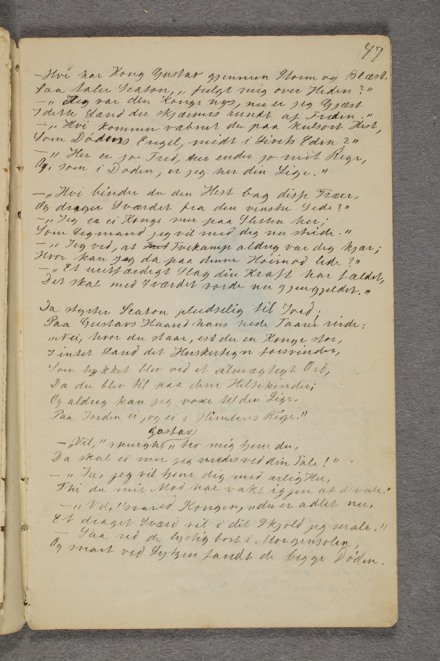 47
- Hvi har Kong Gustav gjennem Storm og Blæst
Saa taler Seaton, "fulgt mig over Heden?"
- "Jeg var den Konge nys, nu er jeg Gjæst
I dette Land der skjærmes rundt af Freden."
- "Hvi kommer væbnet du paa kulsort Hest,
Som Dødens Engel, midt i Livets Eden?"
- "Her er jo Fred, her ender jo mit Rige,
Og som i Døden, er jeg her din Lige."
- "Hvi binder du den Hest bag disse Træer,
Og drager Sværdet fra den venstre Lede?"
- "Jeg ei Konge mer paa Hesten her;
Som jeg med dig nu stride."
- "Jeg ved, at Tvekamp aldrig var dig kjær;
Hvor kan jeg da paa denne lide?"
- "Et uretfærdigt Slag din Kraft har fældet,
Det skal med Sværdet vorde nu gjengjeldet."
Da styrter Seaton pludselig til Jord;
Paa Gustavs Haand hans hede Taarer rinde:
"Nei, hvor du staar, est du en Konge stor,
I intet Land det Herskertegn forsvinder,
Som trykket blev ved et almægtigt Ord,
Da du blev til paa dine
Og aldrig kan jeg voxe til din Lige.
Paa Jorden ei, og ei i Himlens Rige."
Gustav
- "Vel," "bro mig hen du,
Da skal ei mer jeg vredes ved din Tale!"
- "Ja, jeg vil hevne dig med ærlig Hu,
Thi du mit Mod har vakt igjen af Dvale."
- "Vel!" svared Kongen, "du er adlet nu,
Et draget Sværd vil i dit Skjold jeg male."
- Saa red de lystig bort i Morgensolen,
Og snart ved Lützen fandt de begge Døden.